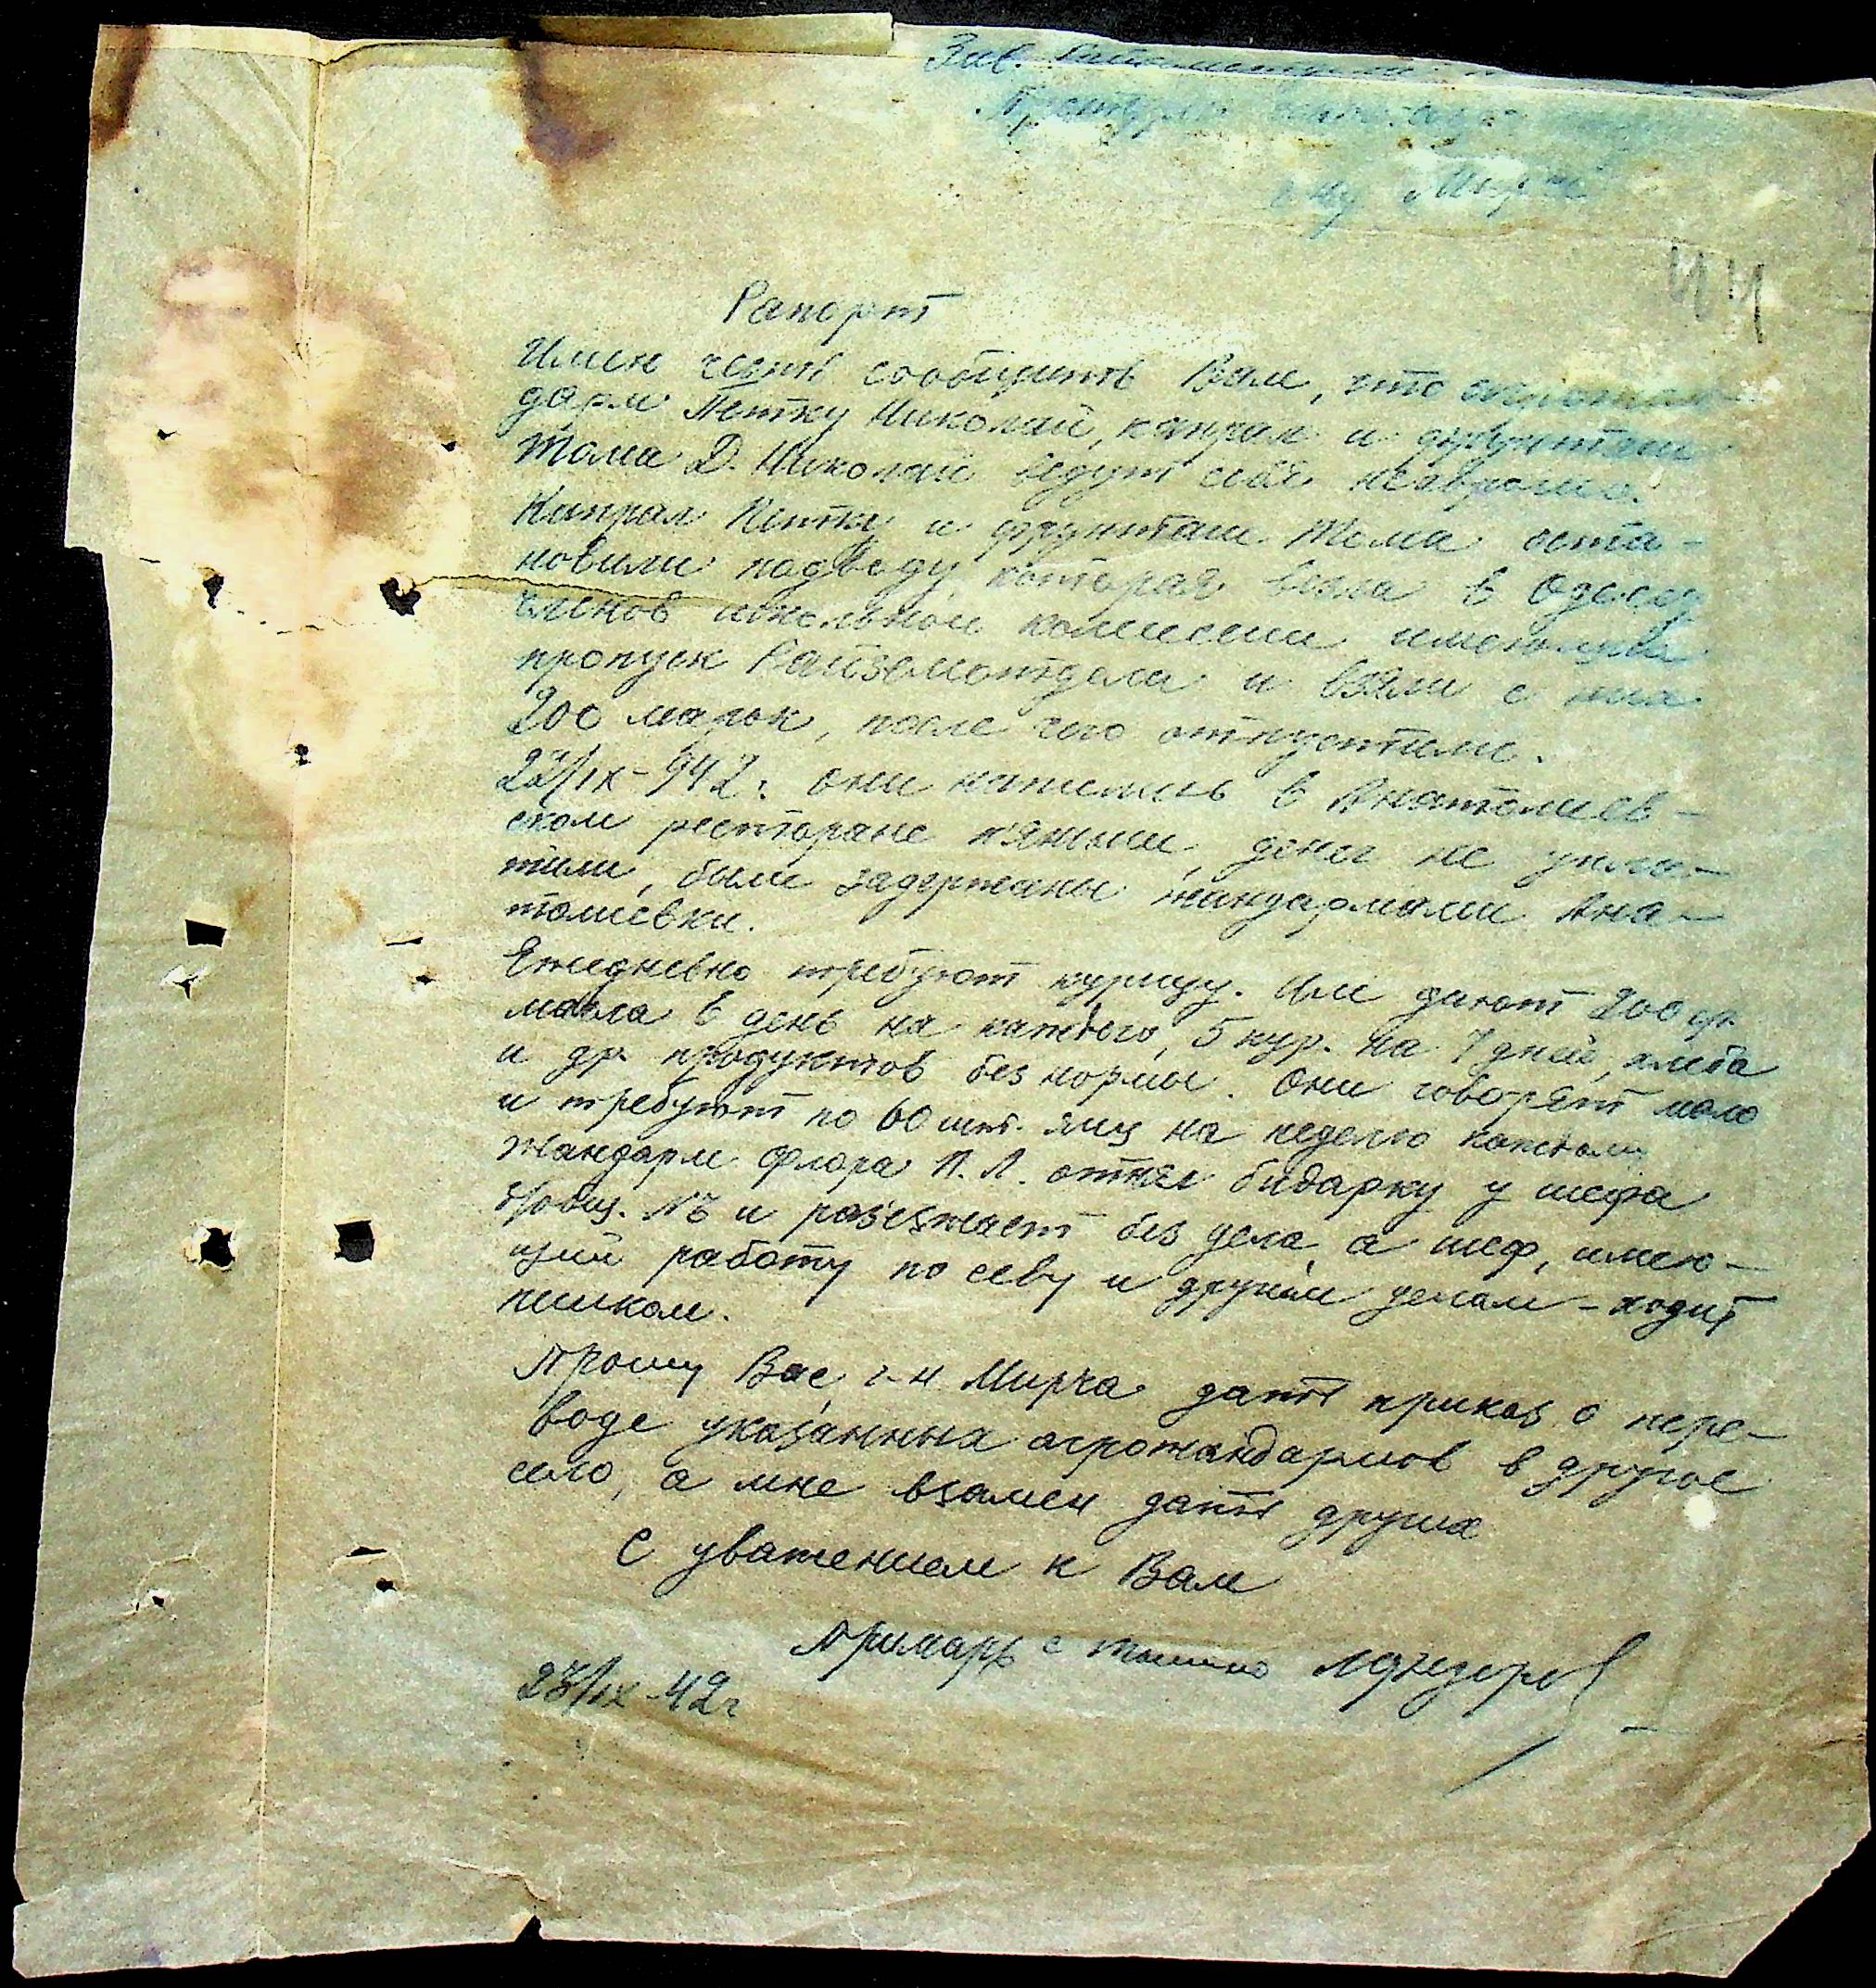 Зав.
г-ну Мирча
Рапорт
Имею честь сообщить Вам, что
дарм Петку Николай, капрал и фрунташ
Тома Д. Николай ведут себя
Капрал Петку и фрунташ Тома оста-
новили подводу, которая везла в Одессу
членов школьной комиссии
пропуск Райземотдела и взяли с них
200 марок, после чего отпустили.
22/IX-942г. они напились в Анатолиев-
ском ресторане п'яными, денег не упла-
тили, были задержаны жандармами Ана-
толиевки.
Ежедневно требуют курицу. Им дают 200 гр.
масла в день на каждого, 5 кур. на 7 дней, хлеба
и др. продуктов без нормы. Они говорят мало
и требуют по 60 шт. яиц на неделю каждому
Жандарм Флоря П. Л. отнял бидарку у шефа
и раз'езжает без дела а шеф, имею-
щий работу по севу и другим делам - ходит
пешком.
Прошу Вас г-н Мирча дать приказ о пере-
воде указанных агрожандармов в другое
село, а мне взамен дать других
С уважением к Вам
Примарь с.
23/IX-42г